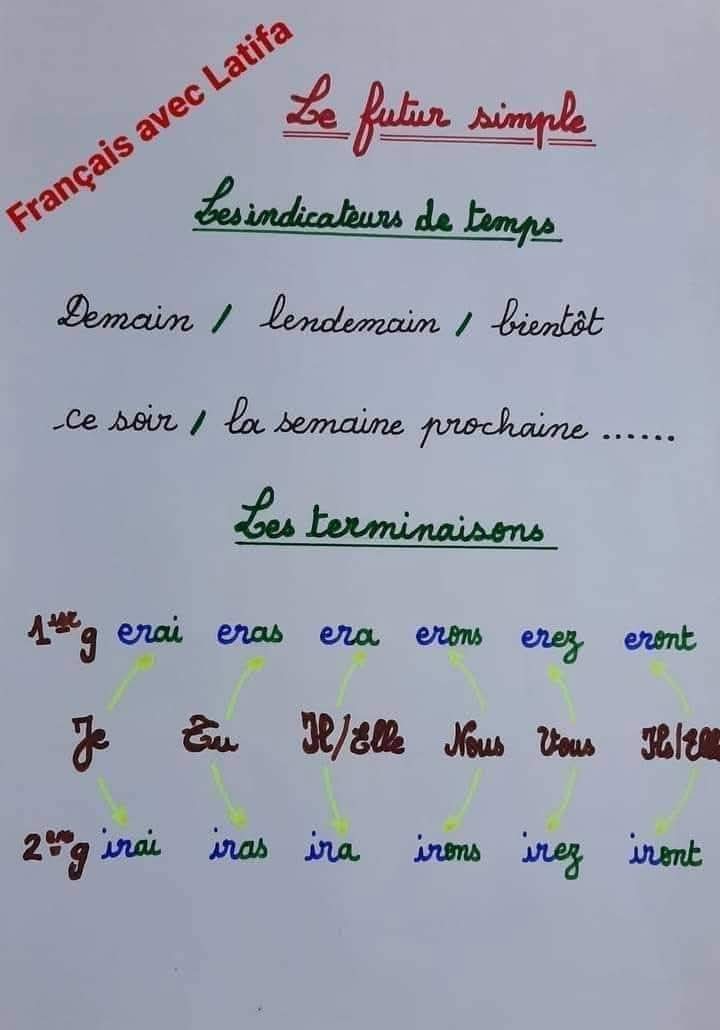 Français avec Latifa
Le futur simple
Les indicateurs de temps
Demain / lendemain / bientôt
ce soir / la semaine prochaine ......
Les terminaisons
1ier g erai eras era erons erez eront
Je Tu Il/Elle Nous Vous
2em g irai iras ira irons irez iront